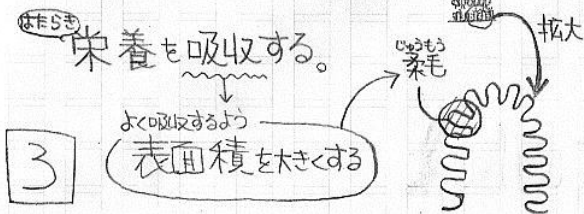 はたらき
栄養を吸収する。
よく吸収するよう
表面積を大きくする
3
じゅうもう
柔毛
拡大